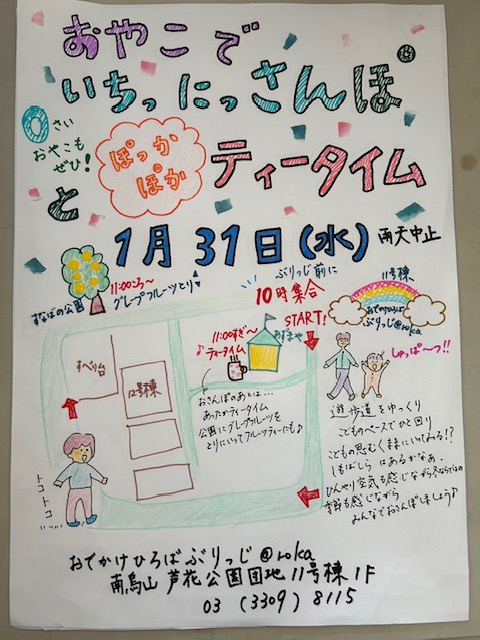 おやこで
いちっ にっ さんぽ
0さい
おやこも
ぜひ!
と
ぽっか
ぽか
ティータイム
1月31日(水)
雨天中止
すなばの公園
11:00ころ〜
グレープフルーツとり
ぶりっじ前に
10時集合
START!
11号棟
おでかけひろば
ぶりっじ@roka
11:00すぎ〜
♪ティータイム
あずまや
すべり台
12号棟
おさんぽのあとは…
あったかティータイム
公園にグレープフルーツを
とりにいってフルーツティーにも♪
しゅっぱ〜つ!!
遊歩道をゆっくり
こどものペースでひと回り
こどもの思むくままにいってみる!?
しもばしら はあるかなぁ.
ひんやり空気も感じながら冬ならではの
季節も感じながら
みんなでおさんぽしましょう♪
トコトコ
おでかけひろば ぶりっじ@roka
南烏山 芦花公園団地 11号棟 1F
03 (3309) 8115